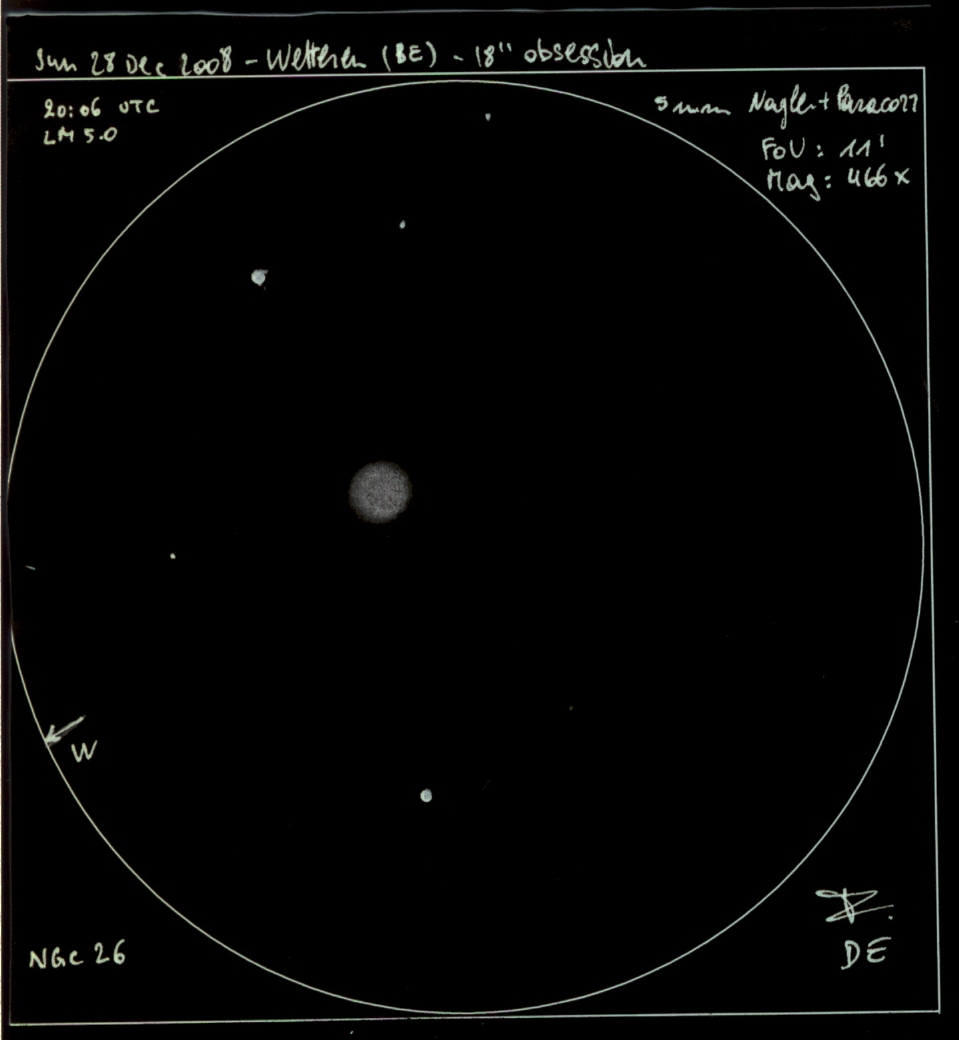 Sun 28 Dec 2008 - Wetteren (BE) - 18" obsession
20:06 UTC
LM 5.0
5 mm Nagler + Paracorr
FoV: 11'
Mag: 466x
W
NGC 26
DE